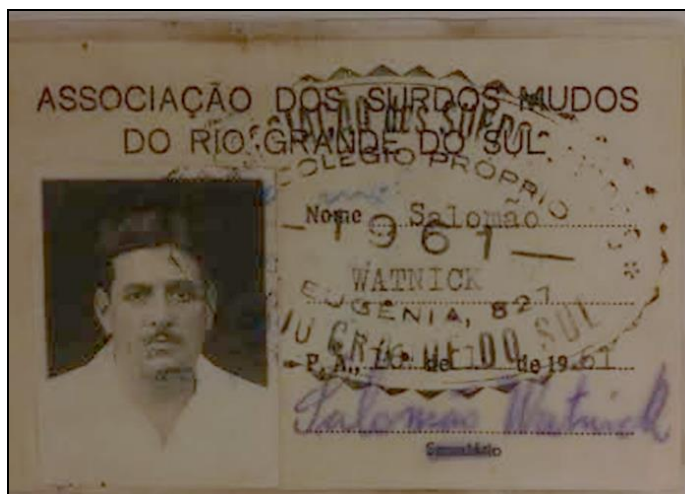 ASSOCIAÇÃO DOS SURDOS MUDOS
DO RIO GRANDE DO SUL
COLEGIO PROPRIO
Nome Salomão
1961
WATNICK
EUGÊNIA, 827
GRANDE DO SUL
P. A., de de 1961
Salomão Watnick